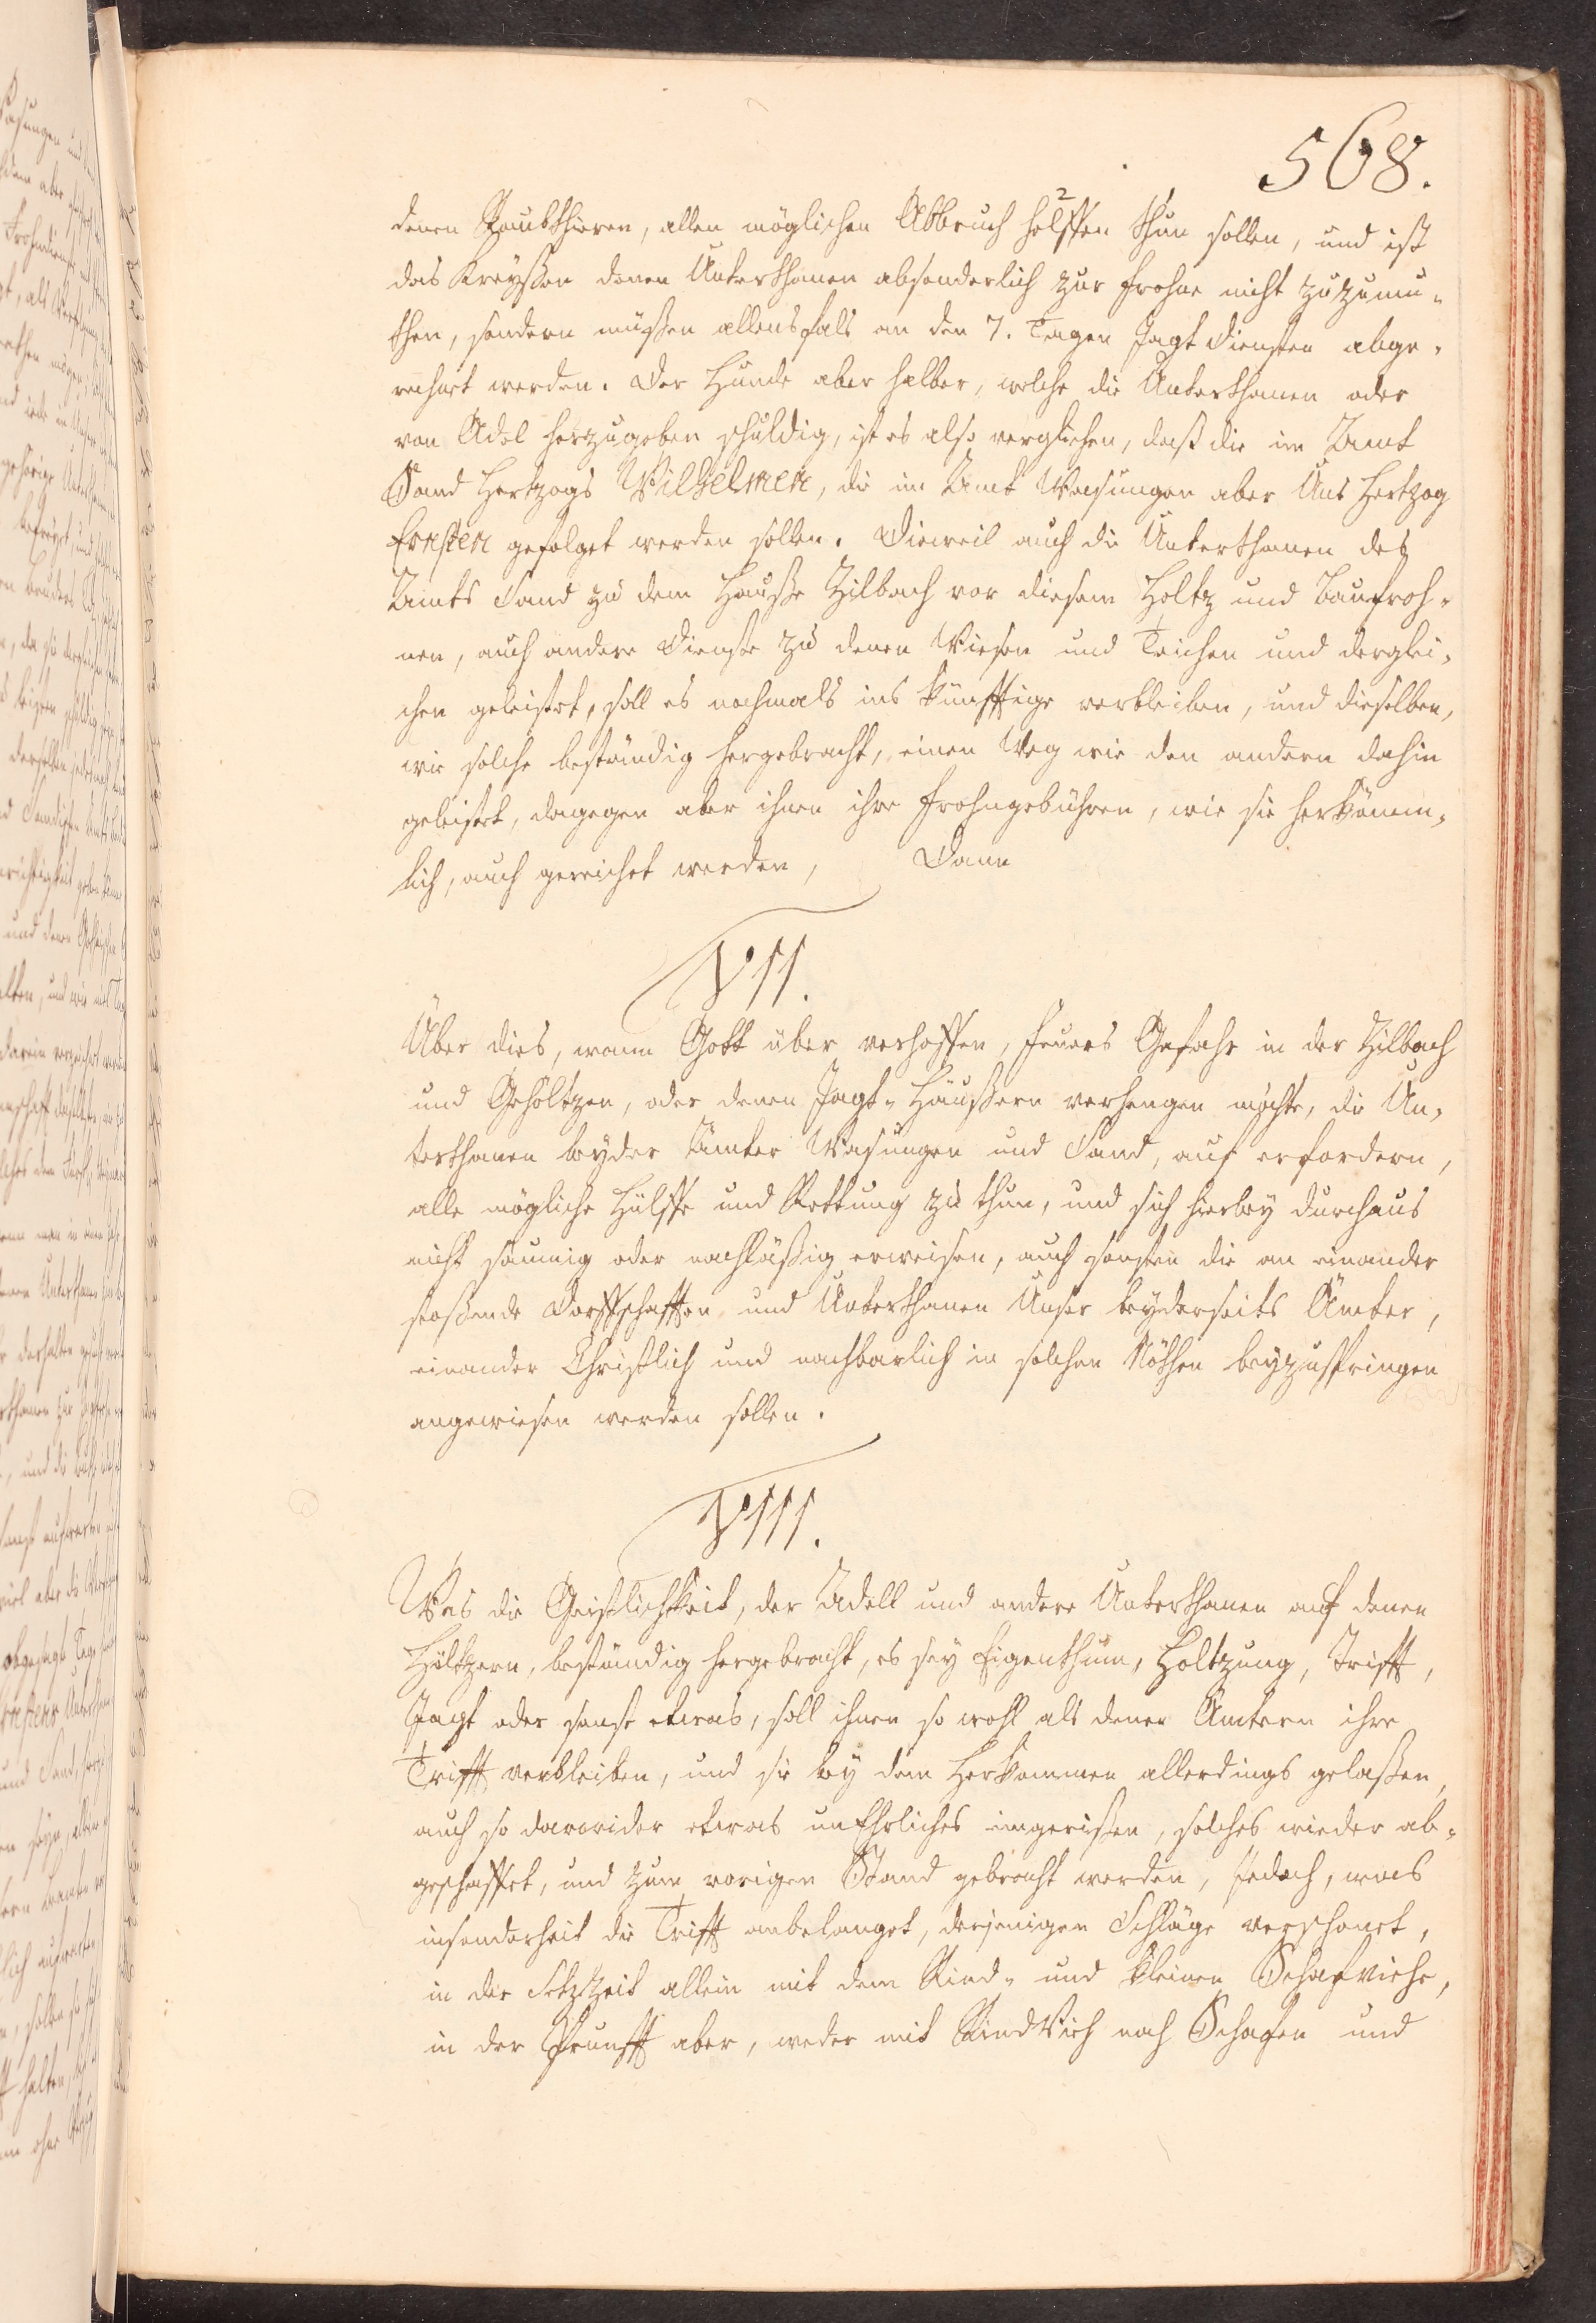 568.
denen Raubthieren, allen möglichen Abbruch helffen thun sollen, und ist
das Kreyßen denen Unterthanen absonderlich zur Frohne nicht zuzumu-
then, sondern müßen allensfals an den 7. Tagen Jagt Diensten abge-
rechnet werden. Der Hunde aber halber, welche die Unterthanen oder
von Adel herzugeben schuldig, ist es also verglichen, daß die im Amt
Sand Hertzogs Wilhelmen, die im Amt Wasungen aber Uns Hertzog
Ernsten gefolget werden sollen. Dieweil auch die Unterthanen des
Amts Sand zu dem Hauße Zilbach vor diesem Holtz und Baufroh-
nen, auch andere Dienste zu denen Wiesen und Teichen und derglei-
chen geleistet, soll es nochmals ins künfftige verbleiben, und dieselben,
wie solche beständig hergebracht, einen Weg wie den andern dahin
geleistet, dagegen aber ihnen ihre Frohngebühren, wie sie herkömm-
lich, auch gereichet werden, Dann
VII.
Über dies, wann Gott über verhoffen, Feuers Gefahr in der Zilbach
und Gehöltzen, oder denen Jagt-Häußern verhengen möchte, die Un-
terthanen beyder Ämter Wasungen und Sand, auf erfordern,
alle mögliche Hülffe und Rettung zu thun, und sich hierbey durchaus
nicht säumig oder nachläßig erweisen, auch sonsten die an einander
stoßende Dorffschafften und Unterthanen Unser beyderseits Ämter,
einander Christlich und nachbarlich in solchen Nöthen beyzuspringen
angewiesen werden sollen.
VIII.
Was die Geistlichkeit, der Adell und andere Unterthanen auf denen
Höltzern, beständig hergebracht, es sey Eigenthum, Holtzung, Trifft,
Jagt oder sonst etwas, soll ihnen so wohl als denen Ämtern ihre
Trifft verbleiben, und sie bey dem Herkommen allerdings gelaßen,
auch so darwider etwas unEhrliches eingerißen, solches wieder ab-
geschaffet, und zum vorigen Stand gebracht werden, jedoch, was
insonderheit die Trifft anbelanget, derjenigen Schläge verschonet,
in der Setzzeit allein mit dem Rind- und kleinen Schafviehe,
in der Prunfft aber, weder mit RindVieh noch Schafen und